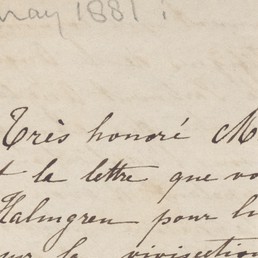 may 1881
Très honoré M
t la lettre que vo
Halmgren pour lu
sur la vivisection